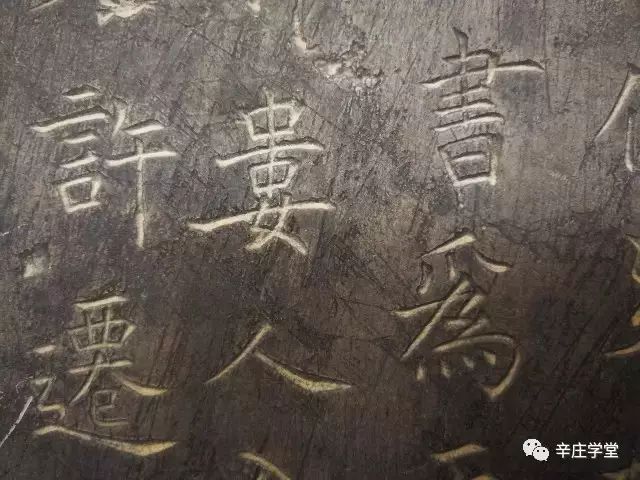 書爲
婁人
許遷
辛庄学堂